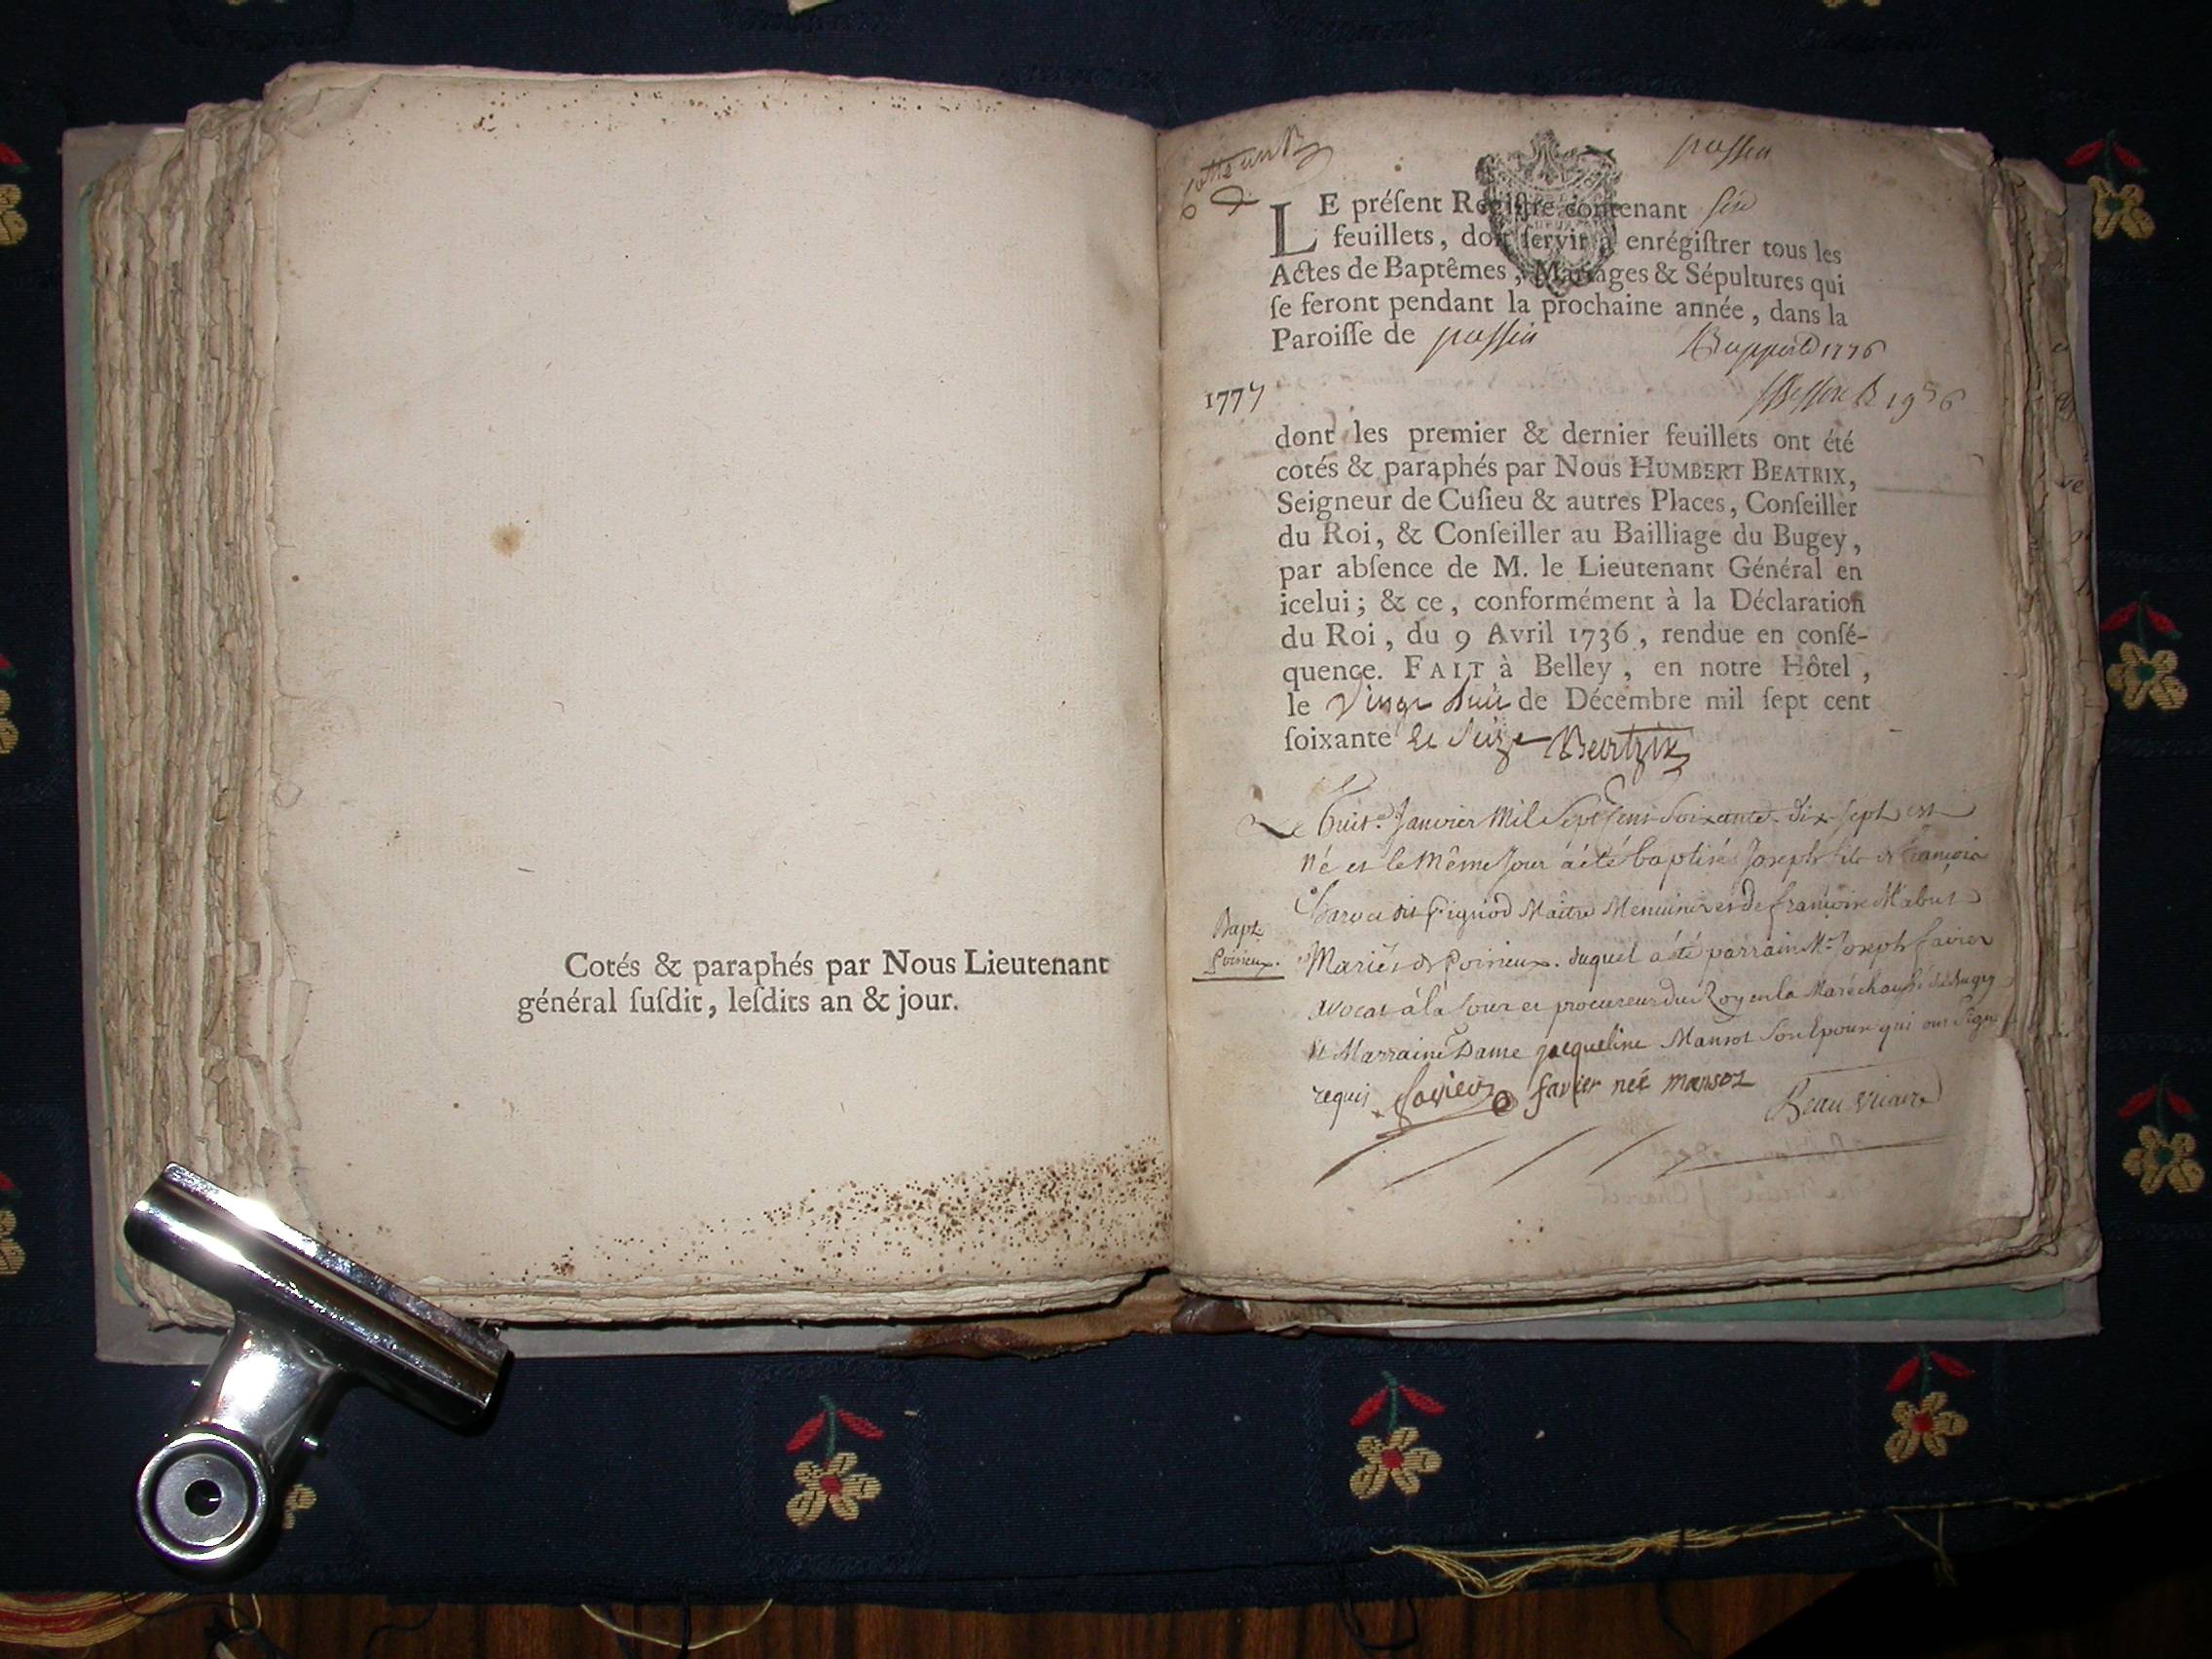 Cotés & paraphés par Nous Lieutenant
général ſuſdit, leſdits an & jour.
passin
LE préſent Regiſtre contenant six
feuillets, doit ſervir à enrégiſtrer tous les
Actes de Baptêmes, Mariages & Sépultures qui
ſe feront pendant la prochaine année, dans la
Paroiſſe de passin
1776
1777
dont les premier & dernier feuillets ont été
cotés & paraphés par Nous HUMBERT BEATRIX,
Seigneur de Cuſieu & autres Places, Conſeiller
du Roi, & Conſeiller au Bailliage du Bugey,
par abſence de M. le Lieutenant Général en
icelui; & ce, conformément à la Déclaration
du Roi, du 9 Avril 1736, rendue en conſé-
quence. FAIT à Belley, en notre Hôtel,
le Vingt huit de Décembre mil ſept cent
ſoixante et seize Beatrix
Le huit Janvier Mil Sept Cent Soixante dix sept est
né et le Même Jour a été baptisé Joseph fils de françois
dit Pignod Maitre Meunier et de françoise Mabut
Bapt.
Poirieux.
Mariés de Poirieux. duquel a été parrain Mr Joseph favier
avocat a la Cour et procureur du Roy en la Maréchaussé du Bugey
et Marraine Dame jacqueline Mansot Son Epouse qui ont Signé
requis favier favier neé mansot
Beau vicaire